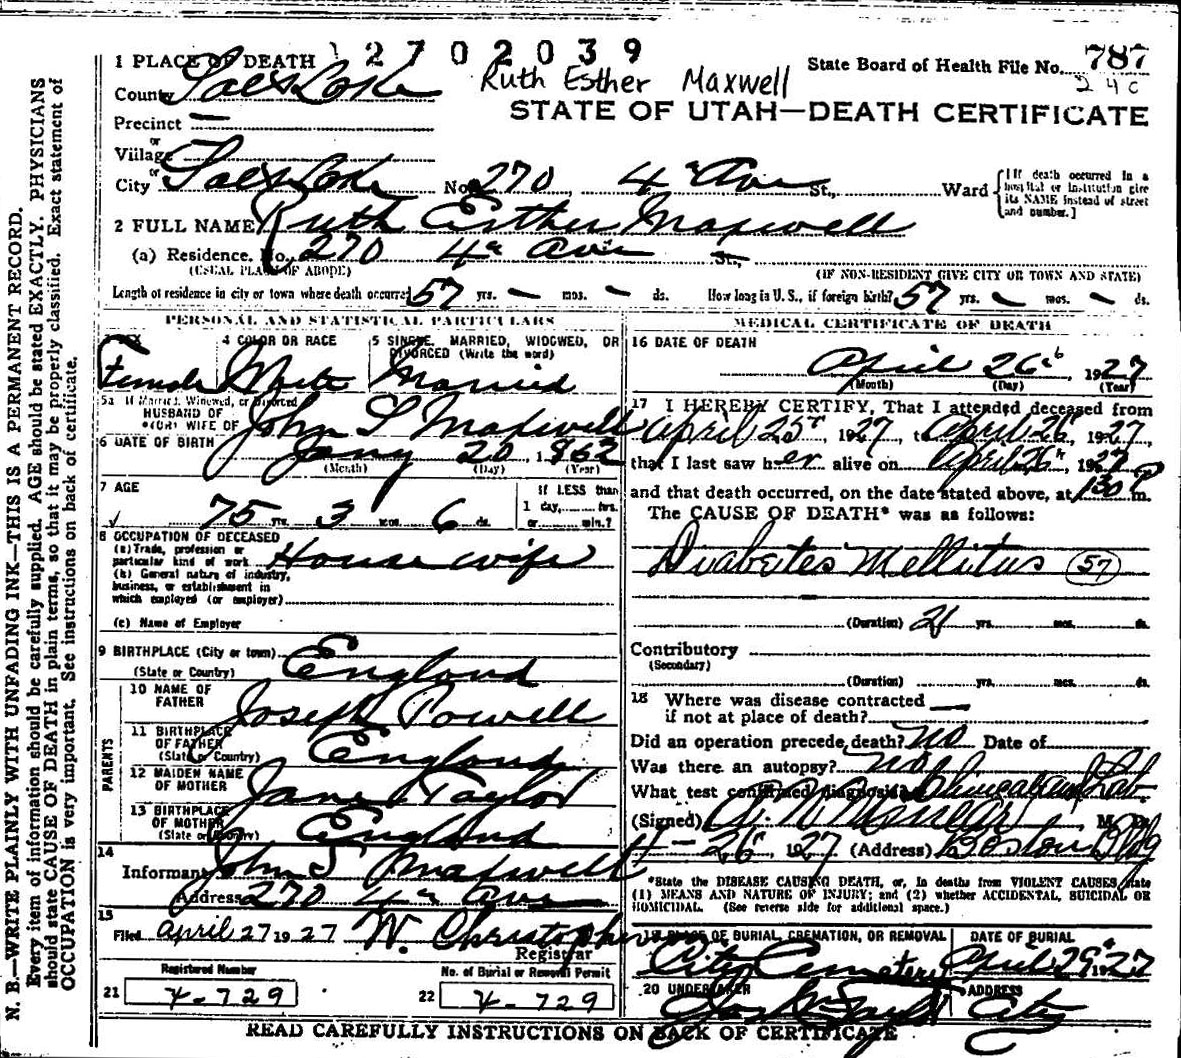 1 2 7 0 2 0 3 9
1 PLACE OF DEATH
State Board of Health File No. 787
County Salt Lake
Ruth Esther Maxwell
240
STATE OF UTAH—DEATH CERTIFICATE
Precinct —
or
Village
or
City Salt Lake No. 270 4th Ave St., Ward
[If death occurred in a hospital or institution give its NAME instead of street and number.]
2 FULL NAME Ruth Esther Maxwell
(a) Residence. No. 270 4th Ave St.,
(USUAL PLACE OF ABODE) (IF NON-RESIDENT GIVE CITY OR TOWN AND STATE)
Length of residence in city or town where death occurred 57 yrs. — mos. — ds. How long in U. S., if foreign birth? 57 yrs. — mos. — ds.
PERSONAL AND STATISTICAL PARTICULARS
3 SEX 4 COLOR OR RACE 5 SINGLE, MARRIED, WIDOWED, OR DIVORCED (Write the word)
Female White Married
5a If Married, Widowed, or Divorced
HUSBAND OF
(OR) WIFE OF John S Maxwell
6 DATE OF BIRTH Jany 20, 1862
(Month) (Day) (Year)
7 AGE If LESS than
75 yrs. 3 mos. 6 ds. 1 day, hrs.
or min.?
8 OCCUPATION OF DECEASED
(a) Trade, profession or particular kind of work House wife
(b) General nature of industry, business, or establishment in which employed (or employer)
(c) Name of Employer
9 BIRTHPLACE (City or town)
(State or Country) England
PARENTS
10 NAME OF FATHER Joseph Powell
11 BIRTHPLACE OF FATHER (State or Country) England
12 MAIDEN NAME OF MOTHER Jane Taylor
13 BIRTHPLACE OF MOTHER (State or Country) England
14
Informant John S Maxwell
Address 270 4th Ave
15
Filed April 27 1927 W. Christopherson
Registrar
Registered Number No. of Burial or Removal Permit
21 4-729 22 4-729
MEDICAL CERTIFICATE OF DEATH
16 DATE OF DEATH
April 26th, 1927
(Month) (Day) (Year)
17 I HEREBY CERTIFY, That I attended deceased from
April 25th, 1927, to April 26th, 1927,
that I last saw her alive on April 26th, 1927
and that death occurred, on the date stated above, at 130 P m.
The CAUSE OF DEATH* was as follows:
Diabetes Mellitus (57)
(Duration) 21 yrs. mos. ds.
Contributory
(Secondary)
(Duration) yrs. mos. ds.
18 Where was disease contracted —
if not at place of death?
Did an operation precede death? no Date of
Was there an autopsy? no
What test confirmed diagnosis? Clinical and Lab.
(Signed) M. D.
- 26, 1927 (Address) Boston Bldg
*State the DISEASE CAUSING DEATH, or, in deaths from VIOLENT CAUSES, state
(1) MEANS AND NATURE OF INJURY; and (2) whether ACCIDENTAL, SUICIDAL OR
HOMICIDAL. (See reverse side for additional space.)
19 PLACE OF BURIAL, CREMATION, OR REMOVAL DATE OF BURIAL
City Cemetery April 29th 1927
20 UNDERTAKER ADDRESS
City
READ CAREFULLY INSTRUCTIONS ON BACK OF CERTIFICATE
N. B.—WRITE PLAINLY WITH UNFADING INK—THIS IS A PERMANENT RECORD.
Every item of information should be carefully supplied. AGE should be stated EXACTLY. PHYSICIANS
should state CAUSE OF DEATH in plain terms, so that it may be properly classified. Exact statement of
OCCUPATION is very important. See instructions on back of certificate.